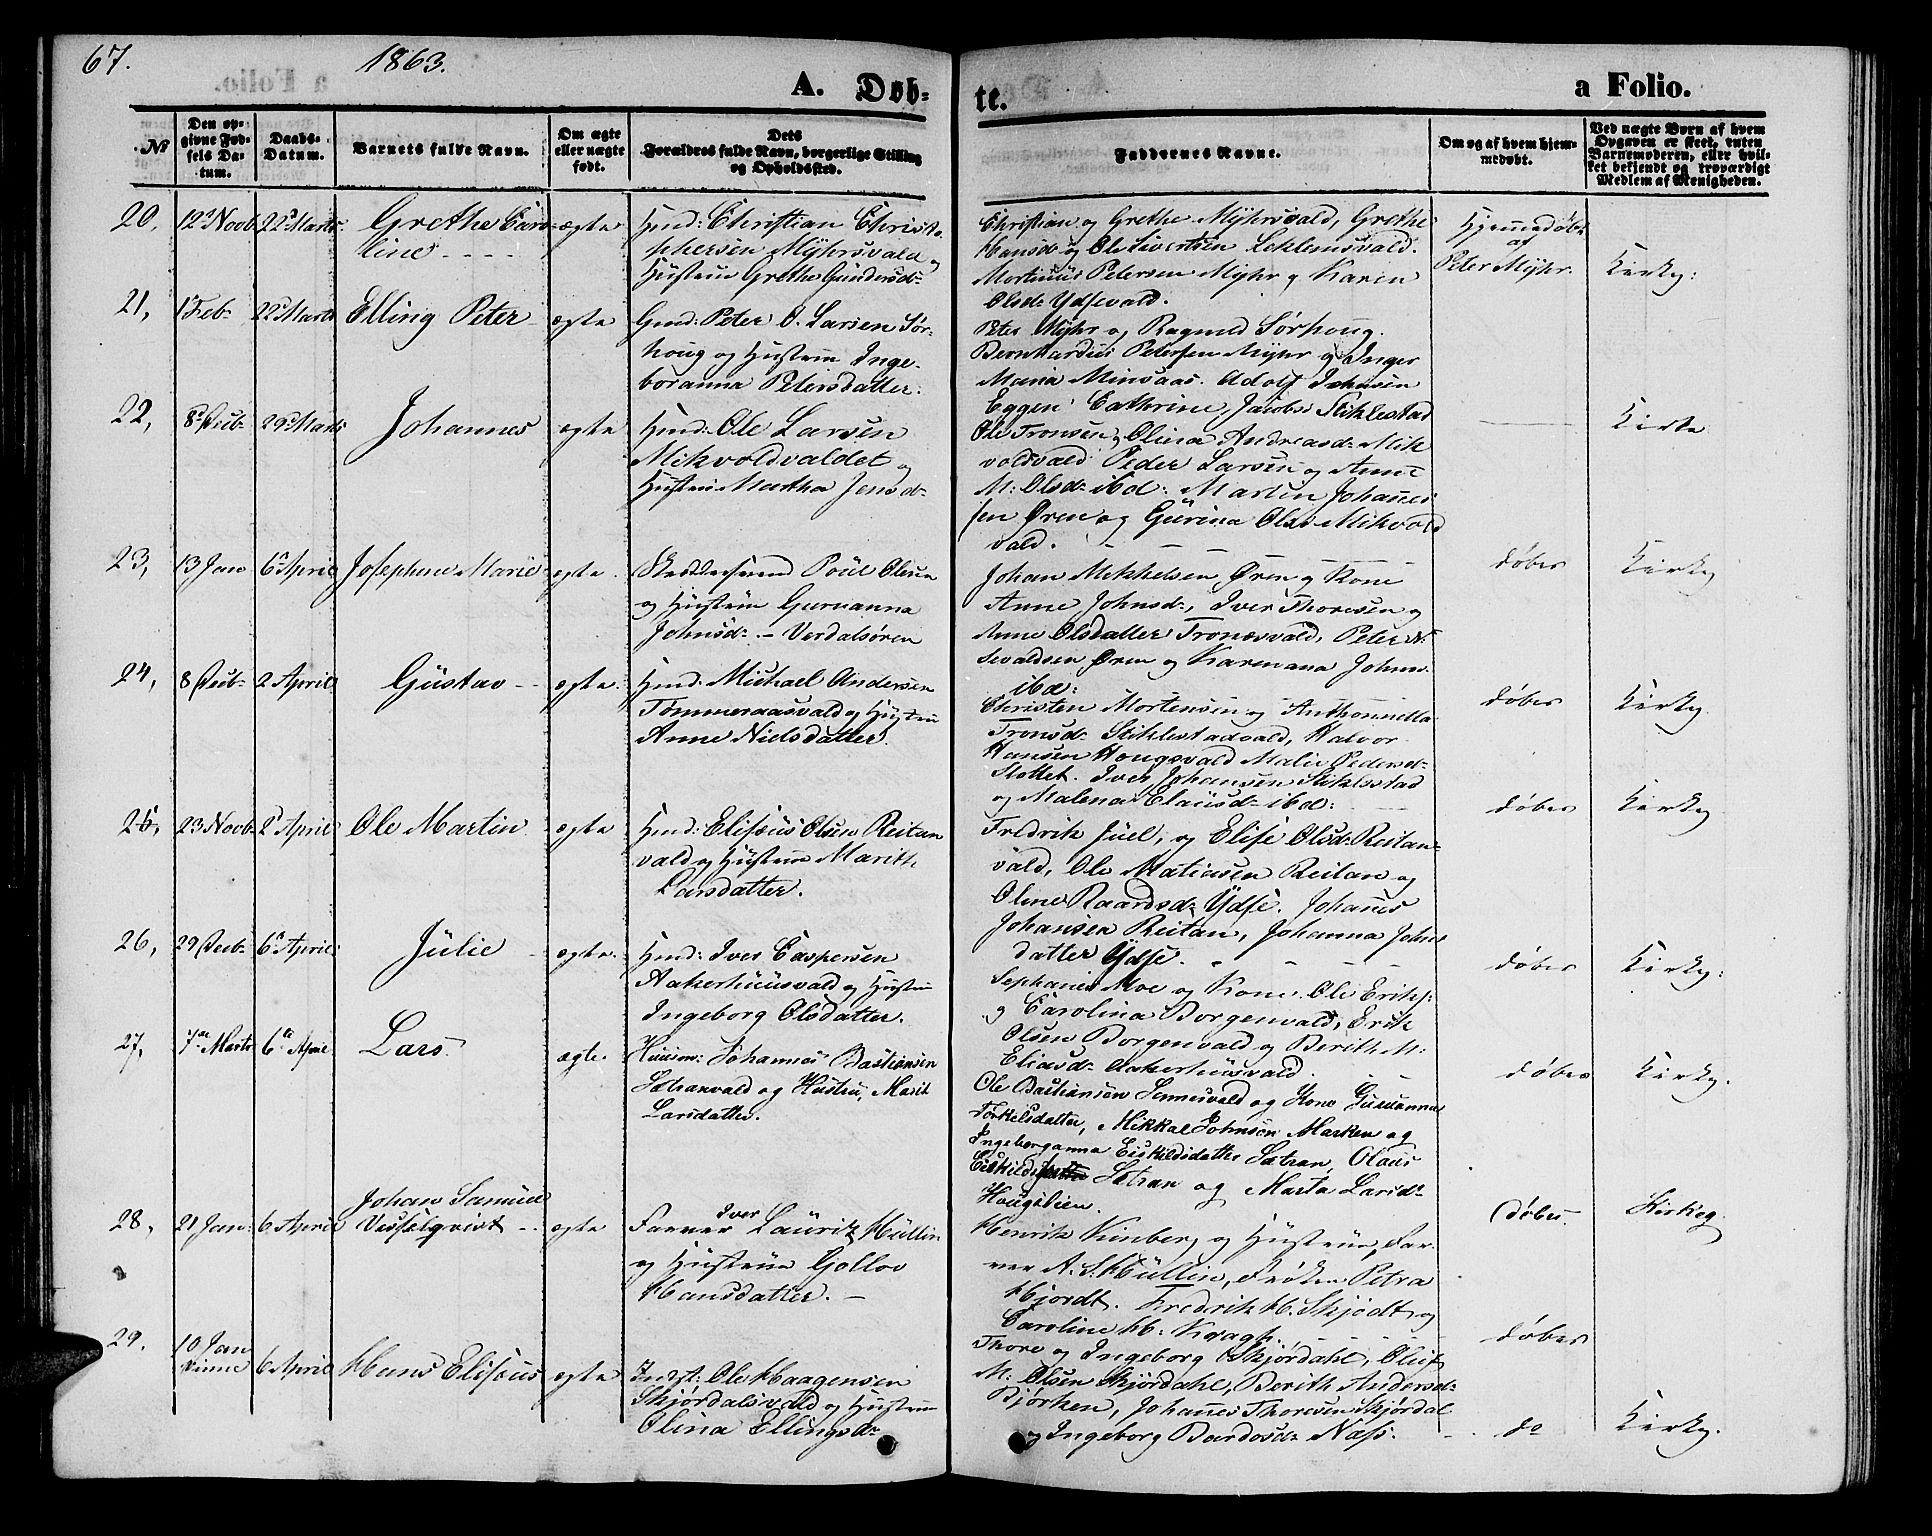 67. 1863.
A. Døb-
te.
a Folio.
No
Den op-
givne Fød-
sels Da-
tum.
Daabs-
Datum.
Barnets fulde Navn.
Om ægte
eller uægte
født.
Dets
Forældres fulde Navn, borgerlige Stilling
og Opholdssted.
Faddernes Navne.
Om og af hvem hjem-
medøbt.
Ved uægte Børn af hvem
Opgaven er skeet, enten
Barnemoderen, eller hvil-
ket bekjendt og troværdigt
Medlem af Menigheden.
20. 12 Novb 22 Marts Grethe Caro-
line
ægte
Hmd: Christian Christo
phersen Myhrsvald og
Hustrue Grethe Gundersd:
Christian og Grethe Myhrsvald, Grethe
Hansd: og Ole Sivertsen Leklemsvald.
Mortinus Petersen Myhr og Karen
Olsd: Ydsevald.
Hjemmedøbt
af
Peter Myhr.
Kirkeg:
21, 1 Feb 22 Marts Elling Peter ægte
Gmd: Peter O. Larsen Sør-
houg og Hustrue Inge-
boranna Petersdatter.
Peter Myhr og Ragnild Sørhoug.
Bernhardus Petersen Myhr og Inger
Maria Minsaas. Adolf Johnsen
Eggen Cathrine Jacobs: Stiklestad
22, 8 Decb 29 Marts Johannes ægte
Hmd: Ole Larsen
Mikvoldvaldet og
Hustru Martha Jensd:
Ole Tronsen og Olina Andreasd: Mik
voldvald Peder Larsen og Anne
M: Olsd: ibd: Martin Johannes
sen Øren og Gurina Olsd Mikvold
vald.
Kirke
23, 13 Jan 6 April Josephine Marie ægte
Skræddersvend Poul Olsen
og Hustrue Gurianna
Johnsd: Verdalsøren
Johan Mikkelsen Øren og Kone
Anne Johnsd:, Iver Thoresen og
Anne Olsdatter Tronæsvald, Peter N:
Sevaldsen Øren og Karenana Johns
ibd:
døber Kirkeg
24, 8 Decb 2 April Gustav ægte
Hmd: Michael Andersen
Tømmeraasvald og Hustru
Anne Nielsdatter.
Christen Mortensen og Anthonnetta
Tronsd: Stiklestadvald, Halvor
Hansen Hougsvald Malie Pedersd:
Slottet. Iver Johansen Stiklestad
og Malena Clausd: ibd:
døber Kirkeg.
25, 23 Novb 2 April Ole Martin ægte
Hmd: Elisæus Olsen Reitan
vald og Hustrue Marith
Larsdatter.
Fredrik Juel, og Elise Olsd: Reitan-
vald, Ole Matiasen Reitan og
Oline Baardsd: Ydse. Johanes
Johansen Reitan, Johanna Johns
datter Ydse.
døber Kirkeg
26, 29 Decb 6 April Julie ægte
Hmd: Iver Caspersen
Aakerhuusvald og Hustru
Ingeborg Olsdatter.
Sephanias Moe og Kone Ole Eriks:
og Carolina Borgenvald, Erik
Olsen Borgenvald og Berith M:
Eliasd: Aakerhusvald.
døber Kirkeg:
27, 7de Marts 6te April Lars ægte
Huusm: Johannes Bastiansen
Sætranvald og Hustru, Marit
Larsdatter.
Ole Bastiansen Sennesvald og Kone Gurianna
Torkelsdatter, Mikkal Johnsen Marken og
Ingeborganna Eiskildsdatter Sætran, Olaus
Eiskildsen Sætran og Marta Larsd:
Hougslien.
døber Kirkeg.
28, 21 Jan 6 April Johan Samuel
Vesselqvist ægte
Farver Iver Lauritz Mullin
og Hustrue Gollov
Hansdatter.
Henrik Kimberg og Hustrue, Far-
ver A. S. Mullin, Frøken Petra
Hjordt. Fredrik M. Skjødt og
Caroline M. Kragh.
døber. Kirkeg
29. 10 Jan
6 April Hans Elisæus ægte
Indst: Ole Haagensen
Skjørdalsvald og Hustrue
Olina Ellingsd:
Thore og Ingeborg Skjørdahl, Oluf
M: Olsen Skjørdahl, Berith Andersd:
Bjørken, Johanes Thoresen Skjørdal
og Ingeborg Bardosd: Næss.
døber
do Kirkeg.